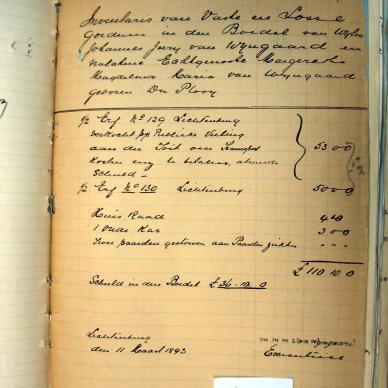 Inventaris van Vaste en Losse
goederen in den Boedel van Wylen
Johannes Jury van Wyngaard en
nalatene Echtgenoote Margaretha
Magdalena Maria van Wyngaard
geboren Du Plooy
½ Erf No 129 Lichtenburg
verkocht p/p Publieke Veiling
aan die Tost om Transport
Kosten eny te betalen, alsmede
Schuld - 53 0 0
½ Erf No 130 Lichtenburg 50 0 0
Huis Raad 4 0 0
1 Oude Kar 3 0 0
Twee paarden gestorven aan Paarden ziekte - - -
£ 110 10 0
Schuld in den Boedel £ 36-12 0
Lichtenburg
den 11 Maart 1893
m m m van Wyngaard
Executrice